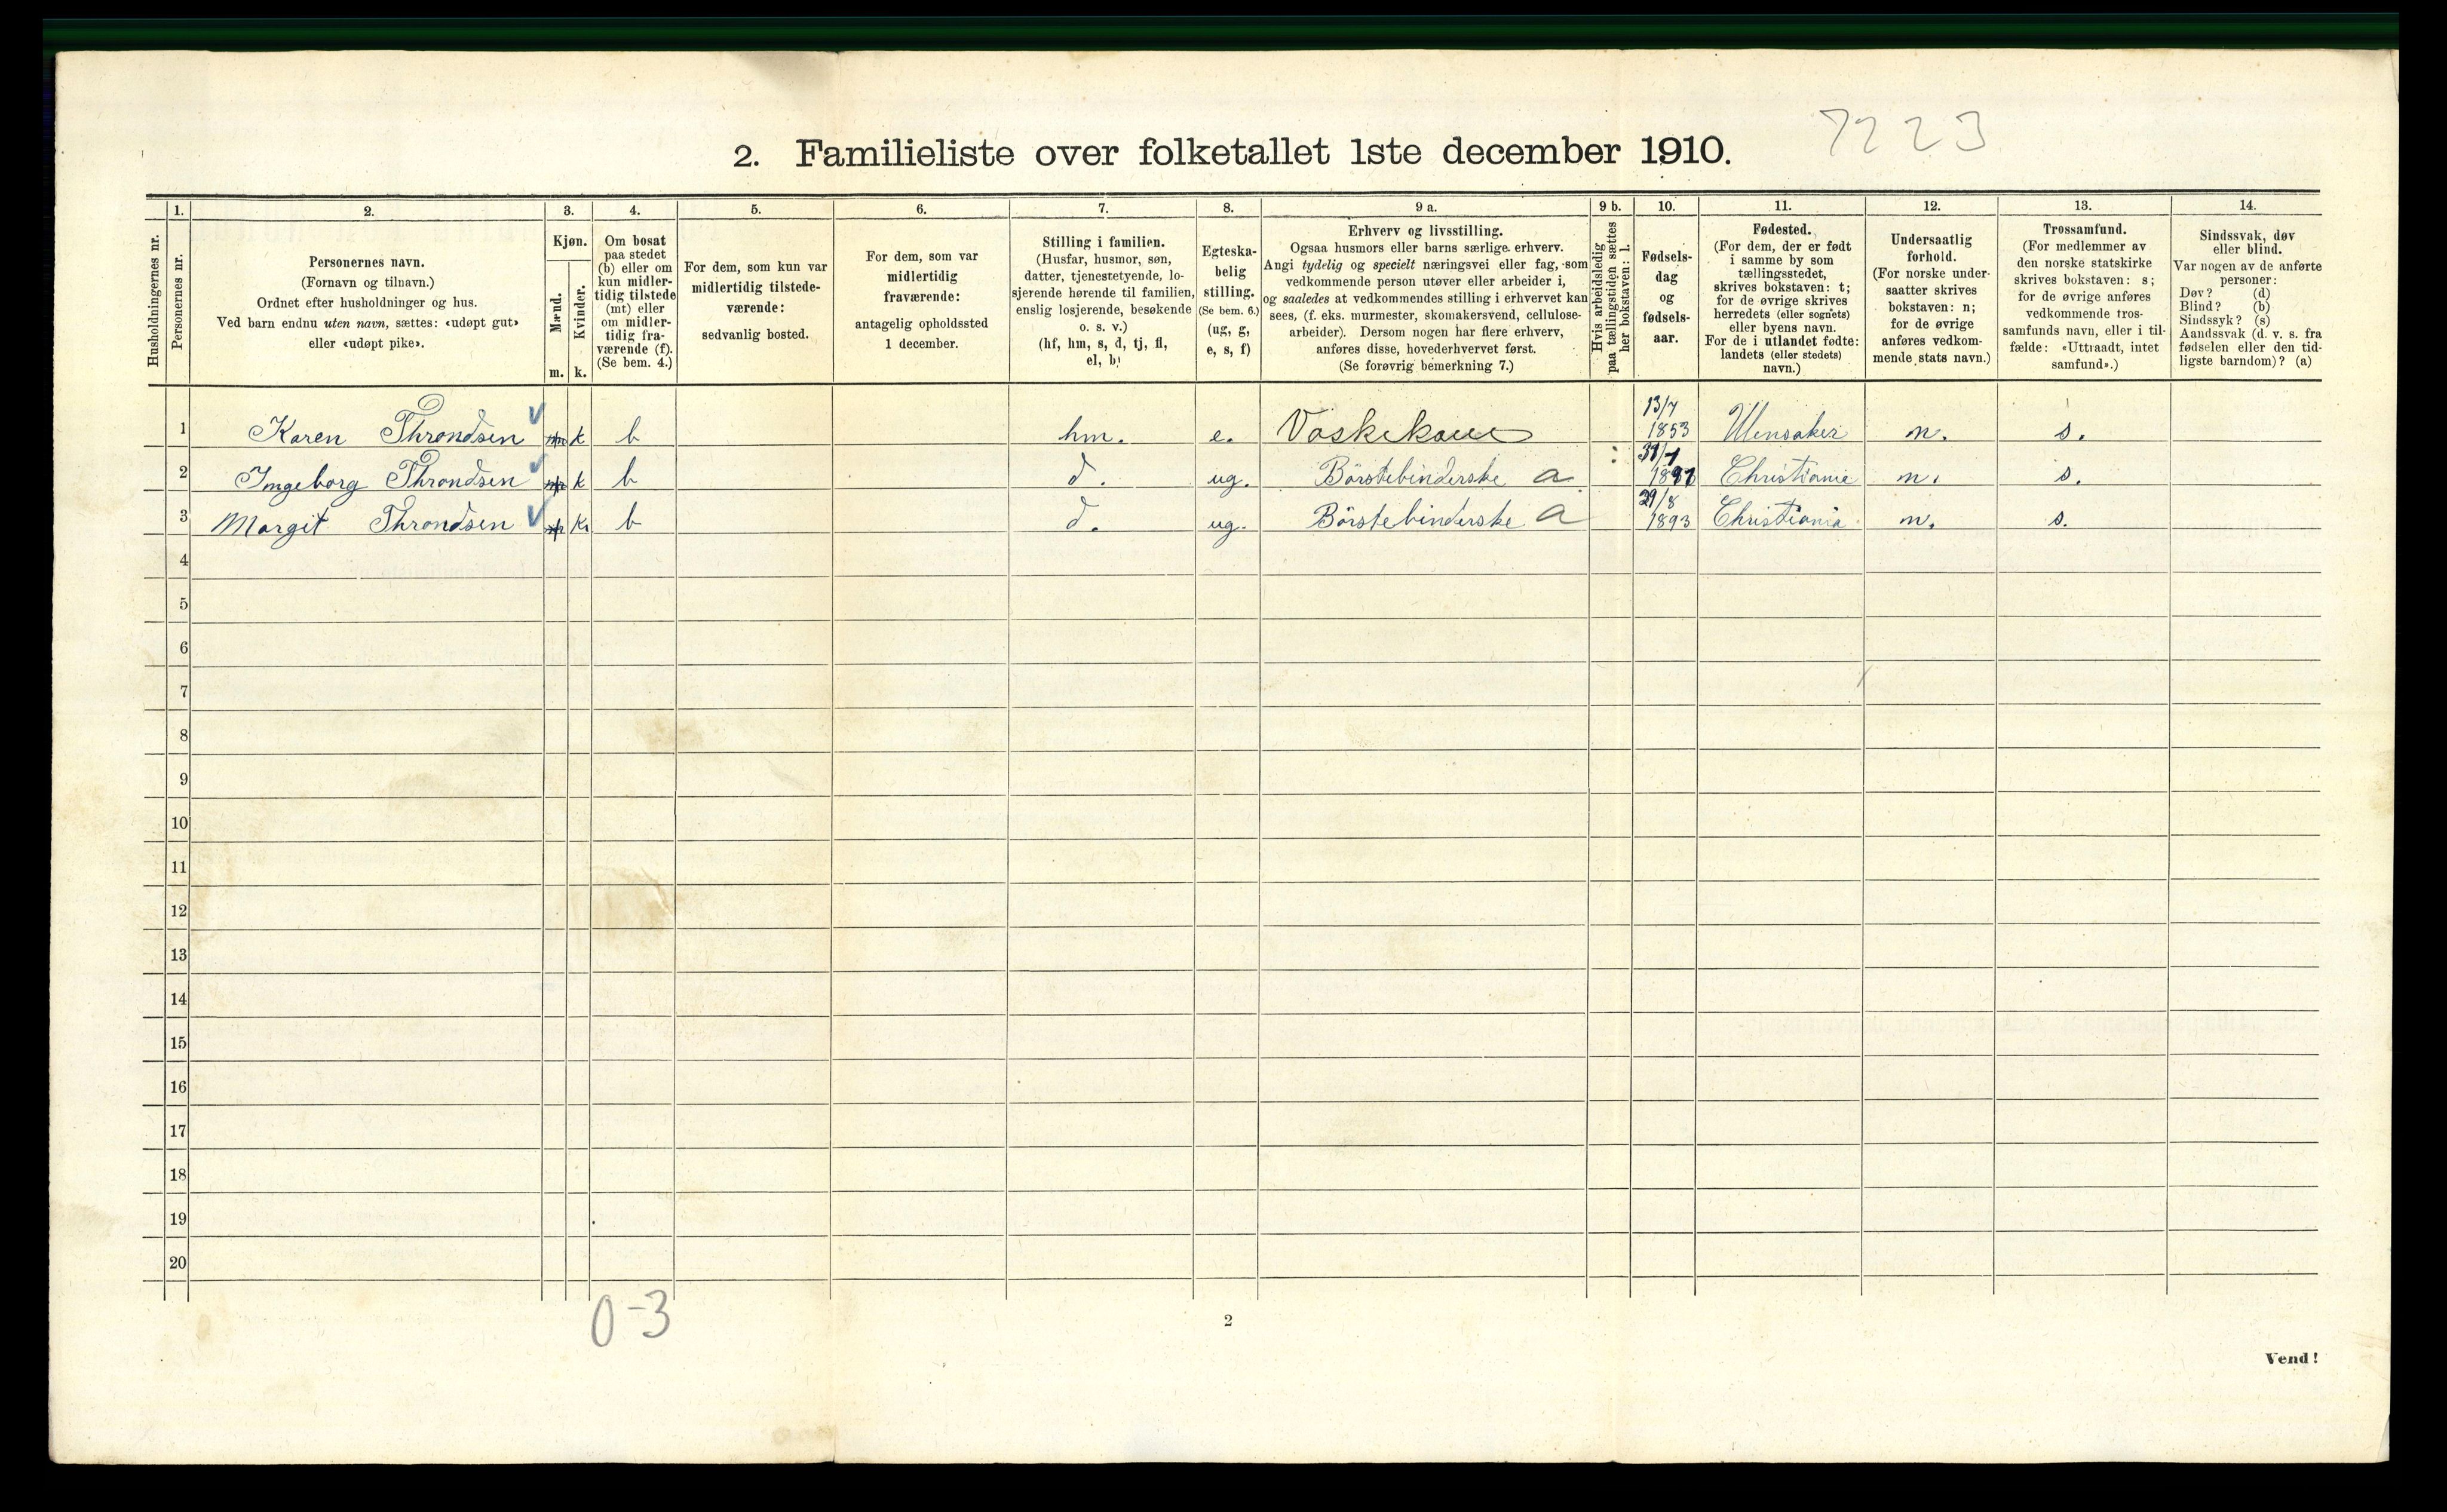 7223
2. Familieliste over folketallet 1ste december 1910.
Husholdningernes nr.
1.
Personernes nr.
2.
Personernes navn.
(Fornavn og tilnavn.)
Ordnet efter husholdninger og hus.
Ved barn endnu uten navn, sættes: «udøpt gut»
eller «udøpt pike».
3.
Kjøn.
Mænd.
Kvinder.
m. k.
4.
Om bosat
paa stedet
(b) eller om
kun midler-
tidig tilstede
(mt) eller
om midler-
tidig fra-
værende (f).
(Se bem. 4.)
5.
For dem, som kun var
midlertidig tilstede-
værende:
sedvanlig bosted.
6.
For dem, som var
midlertidig
fraværende:
antagelig opholdssted
1 december.
7.
Stilling i familien.
(Husfar, husmor, søn,
datter, tjenestetyende, lo-
sjerende hørende til familien,
enslig losjerende, besøkende
o. s. v.)
(hf, hm, s, d, tj, fl,
el, b)
8.
Egteska-
belig
stilling.
(Se bem. 6.)
(ug, g,
e, s, f)
9 a.
Erhverv og livsstilling.
Ogsaa husmors eller barns særlige erhverv.
Angi tydelig og specielt næringsvei eller fag, som
vedkommende person utøver eller arbeider i,
og saaledes at vedkommendes stilling i erhvervet kan
sees, (f. eks. murmester, skomakersvend, cellulose-
arbeider). Dersom nogen har flere erhverv,
anføres disse, hovederhvervet først.
(Se forøvrig bemerkning 7.)
9 b.
Hvis arbeidsledig
paa tællingstiden sættes
her bokstaven: l.
10.
Fødsels-
dag
og
fødsels-
aar.
11.
Fødested.
(For dem, der er født
i samme by som
tællingsstedet,
skrives bokstaven: t;
for de øvrige skrives
herredets (eller sognets)
eller byens navn.
For de i utlandet fødte:
landets (eller stedets)
navn.)
12.
Undersaatlig
forhold.
(For norske under-
saatter skrives
bokstaven: n;
for de øvrige
anføres vedkom-
mende stats navn.)
13.
Trossamfund.
(For medlemmer av
den norske statskirke
skrives bokstaven: s;
for de øvrige anføres
vedkommende tros-
samfunds navn, eller i til-
fælde: «Uttraadt, intet
samfund».)
14.
Sindssvak, døv
eller blind.
Var nogen av de anførte
personer:
Døv? (d)
Blind? (b)
Sindssyk? (s)
Aandssvak (d. v. s. fra
fødselen eller den tid-
ligste barndom)? (a)
1 Karen Throndsen k b hm. e. Vaskekone 13/7 1853 Ulensaker n. s.
2 Ingeborg Throndsen k b d. ug. Börstebinderske a n. s. Christiania
3 Margit Throndsen k. b d. ug. Börstebinderske a 29/8 1893 Christiania n. s.
4
5
6
7
8
9
10
11
12
13
14
15
16
17
18
19
20
0-3
2
Vend!